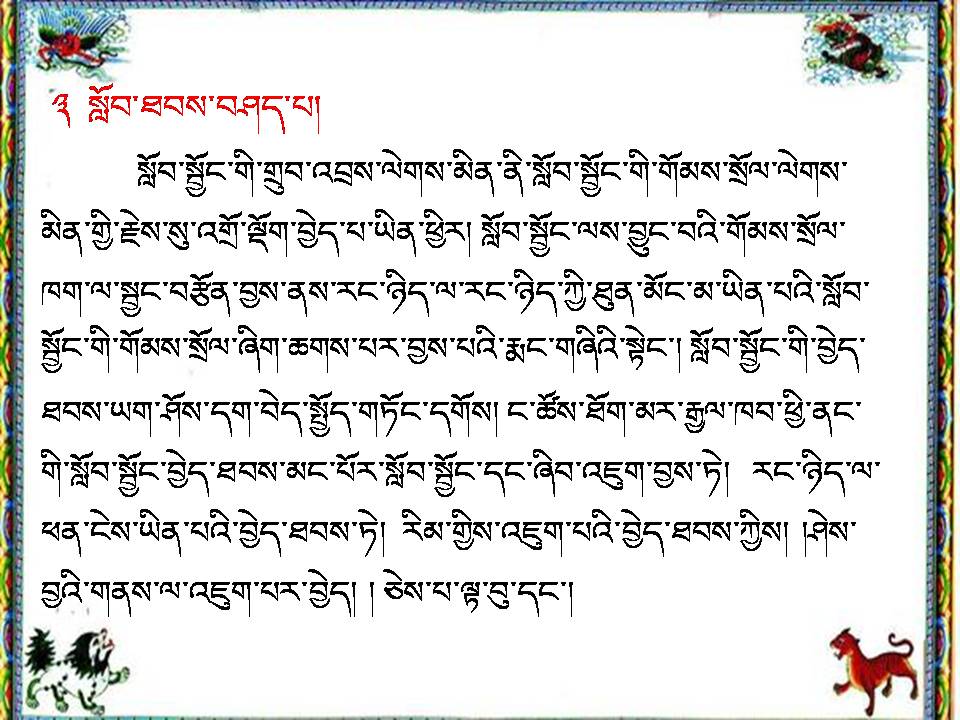 ༣ སློབ་ཐབས་བཤད་པ།
སློབ་སྦྱོང་གི་གྲུབ་འབྲས་ལེགས་མིན་ནི་སློབ་སྦྱོང་གི་གོམས་སྲོལ་ལེགས་
མིན་གྱི་རྗེས་སུ་འགྲོ་ལྡོག་བྱེད་པ་ཡིན་ཕྱིར། སློབ་སྦྱོང་ལས་བྱུང་བའི་གོམས་སྲོལ་
ཁག་ལ་སྦྱང་བརྩོན་བྱས་ནས་རང་ཉིད་ལ་རང་ཉིད་ཀྱི་ཐུན་མོང་མ་ཡིན་པའི་སློབ་
སྦྱོང་གི་གོམས་སྲོལ་ཞིག་ཆགས་པར་བྱས་པའི་རྨང་གཞིའི་སྟེང་། སློབ་སྦྱོང་གི་བྱེད་
ཐབས་ཡག་ཤོས་དག་བེད་སྤྱོད་གཏོང་དགོས། ང་ཚོས་ཐོག་མར་རྒྱལ་ཁབ་ཕྱི་ནང་
གི་སློབ་སྦྱོང་བྱེད་ཐབས་མང་པོར་སློབ་སྦྱོང་དང་ཞིབ་འཇུག་བྱས་ཏེ། རང་ཉིད་ལ་
ཕན་ངེས་ཡིན་པའི་བྱེད་ཐབས་ཏེ། རིམ་གྱིས་འཇུག་པའི་བྱེད་ཐབས་ཀྱིས། །ཤེས་
བྱའི་གནས་ལ་འཇུག་པར་བྱེད། ། ཅེས་པ་ལྟ་བུ་དང་།